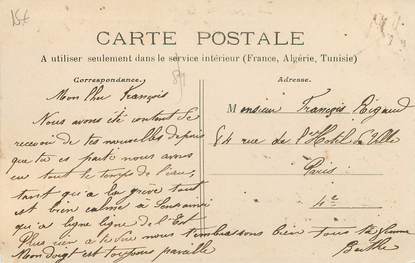 15€
CARTE POSTALE
A utiliser seulement dans le service intérieur (France, Algérie, Tunisie)
Correspondance.
Adresse.
Mon cher François
Nous avons été content de
recevoir de tes nouvelles depuis
que tu es parti nous avons
eu tout le temps de l'eau,
tant qu'a la grève tout
est bien calme à
qu'a ligne ligne de l'Est
Plus rien a te dire nous t'embrassons bien tous ta femme
Mon doigt est toujours pareille
Berthe
Monsieur François Rigaud
84 rue de l'Hotel de Ville
Paris
4e